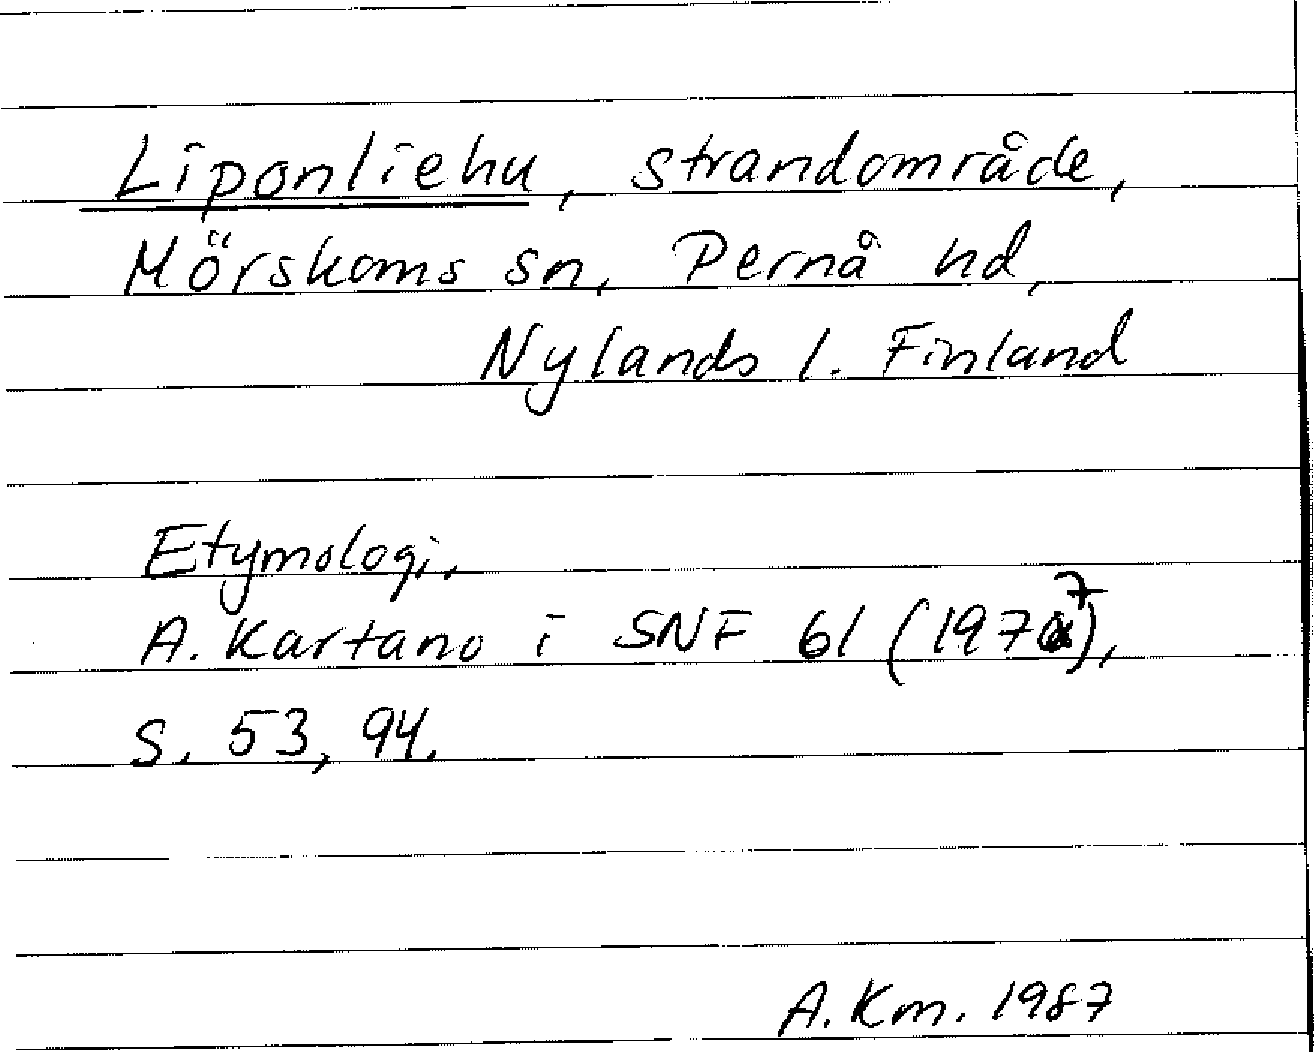 Liponliehu, strandområde,
Mörskoms sn, Pernå hd,
Nylands l. Finland
Etymologi.
A. Kartano i SNF 61 (1977),
S. 53, 94.
A. Km. 1987